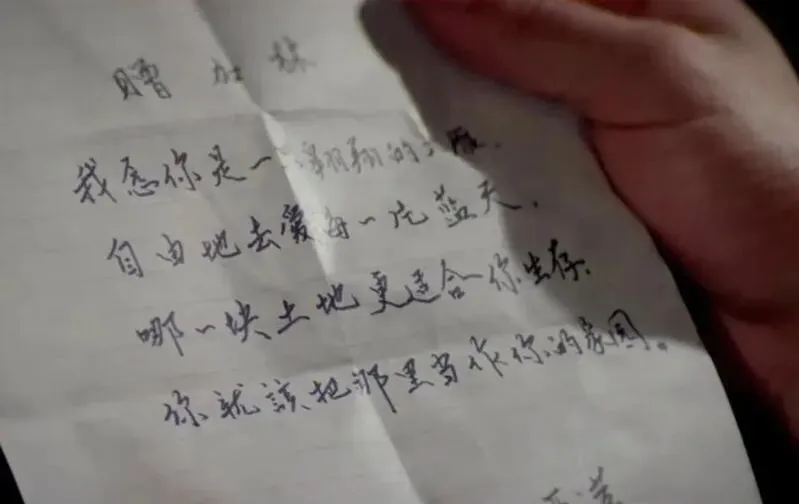 赠加林
我愿你是一 翱翔的
自由地去爱每一片蓝天，
哪一块土地更适合你生存，
你就該把那里当作你的家园。